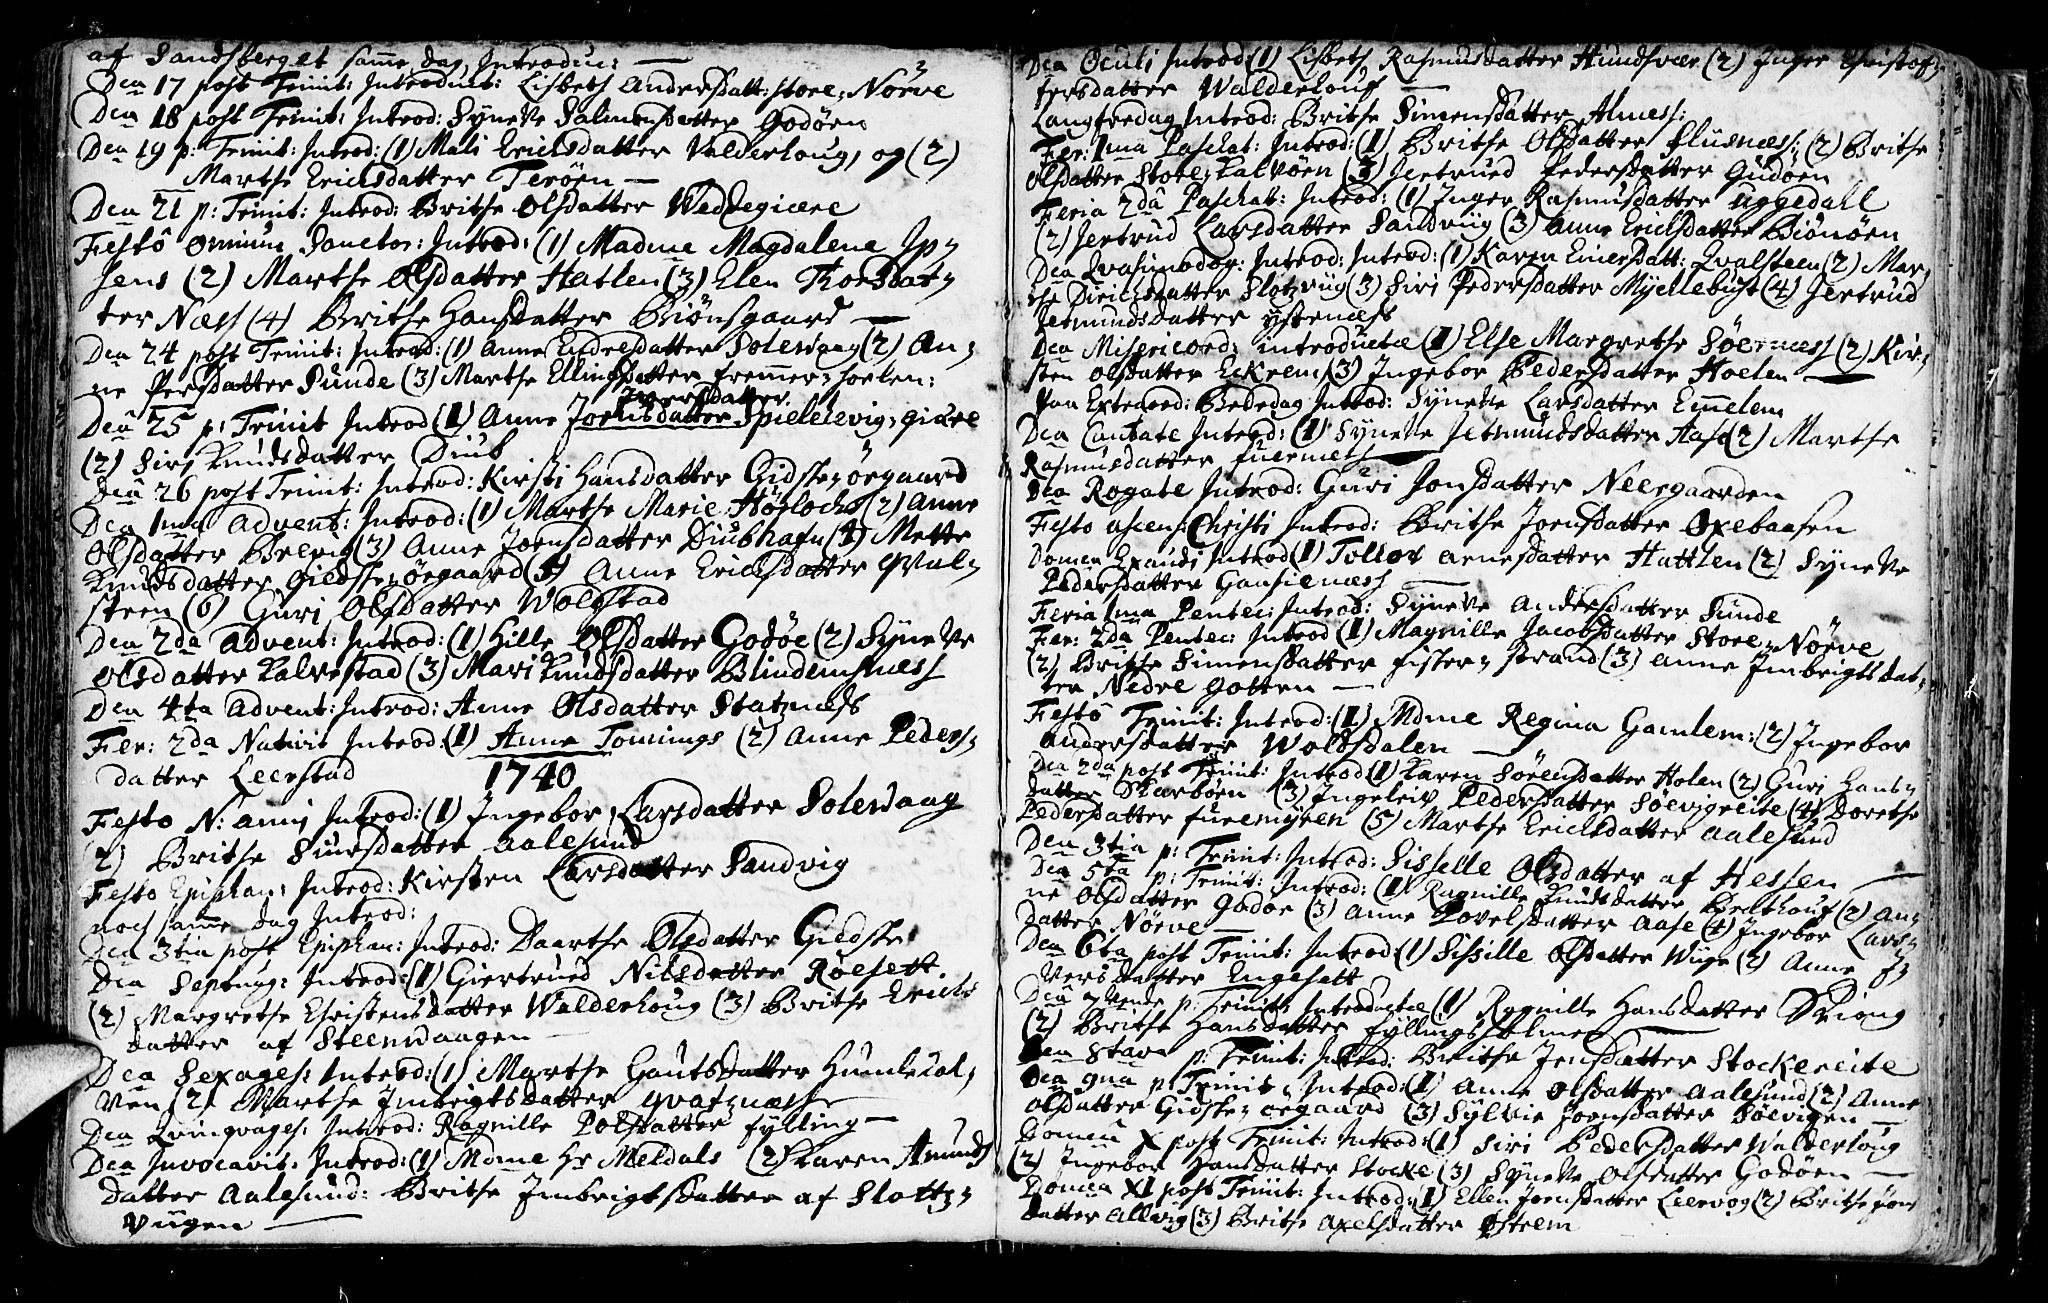 af Sandsberget samme dag, Introdu:
Dca 17 post Trinit: Introduct: Lisbeth Andersdatt: Store-Nörve
Dca 18 post Trinit: Introd: Syneve Salmonsdatter Godöen
Dca 19 p: Trinit: Introd: (1) Mali Ericksdatter Valderhoug, og (2)
Marthe Ericksdatter Teröen
Dca 21 p: Trinit: Introd: Brithe Olsdatter Weddegicere
Festô Omnium Sanctor: Introd: (1) Madme Magdalena Jp-
sens (2) Marthe Olsdatter Hatlen (3) Elen Thorsdat-
ter Næss (4) Brithe Hansdatter Biönsgaard
Dca 24 post Trinit: Introd: (1) Anne Endresdatter Solewaag (2) An-
ne Persdatter Sunde (3) Marthe Ellingsdatter fremmer-hoelen:
Iversdatter
Dca 25 p: Trinit Introd (1) Anne Joensdatter Spiellevig, giære
(2) Siri Knudsdatter Diub
Dca 26 post Trinit: Introd: Kirsti Hansdatter Gidske-öegaard
Dca 1ma Advent: Introd: (1) Marthe Marie Höglochs (2) Anne
Olsdatter Brevig (3) Anne Joensdatter Diubhafn (4) Mette
Knudsdatter Giedske-öegaard (5) Anne Ericksdatter Qval-
steen (6) Guri Olsdatter Woldstad
Dca 2da Advent: Introd: (1) Hille Olsdatter Godöe (2) Syneve
Olsdatter Kalvestad (3) Mari Knudsdatter Blindemsnæss
Dca 4ta Advent: Introd: Anne Olsdatter Statznæss
Fer: 2da Nativit Introd: (1) Anne Tonnings (2) Anne Peders-
datter Leerstad
1740
Festo N: Anni Introd: (1) Ingebor Larsdatter Solewaag
(2) Brithe Siursdatter Aalesund
Festo Epiphan: Introd: Kirsten Larsdatter Sandvig
noch samme dag Introd:
Dca 3tia post Epiphan: Introd: Baarthe Olsdatter Giedske
Dca Septuag: Introd: (1) Giertrued Nilsdatter Röesett
(2) Margrethe Christensdatter Walderhoug (3) Brithe Erichs
datter af Steenwaagen
Dca Sexages: Introd: (1) Marthe Gautsdatter Humlecal-
ven (2) Marthe Imbrigtsdatter Qvatznæss
Dca Qvinqvages: Introd: Ragnille Polsdatter fylling
Dca Invocavit: Introd: (1) Mdme Hr Meldals (2) Karen Amunds
datter Aalesund: Brithe Imbrigtsdatter af Slotz-
viigen
Dca Oculi Introd (1) Lisbeth Rasmusdatter Hundsvær (2) Inger Christof-
fersdatter Walderhouf
Langfredag Introd: Brithe Simensdatter Alness:
Fer: 1ma Paschat: Introd: (1) Brithe Olsdatter fluisness: (2) Brithe
Olsdatter Store-Kalvöen (3) Jertrued Pedersdatter Gudöen
Feria 2dâ Paschat: Introd: (1) Inger Rasmusdatter Uggedall
(2) Jertrud Larsdatter Sandviig (3) Anne Ericksdatter Biönöen
Dca Qvasimodog: Introd: Introd: (1) Karen Einersdatt: Qvalsteen (2) Mar-
the Dirichsdatter Slotzviig (3) Siri Pedersdatter Myellebust (4) Jertrud
Jetmundsdatter Ystenæss
Dca Misericord: introductæ (1) Else Margrethe Söernæss (2) Kir-
sten Olsdatter Eckrem (3) Ingebor Pedersdatter Hoelen
Paa Extraord: Bededag Introd: Syneve Larsdatter Emmelem
Dca Cantate Introd: (1) Syneve Jetmundsdatter Aase (2) Marthe
Rasmusdatter fuernæss
Dca Rogate Introd: Guri Jonsdatter Neergaarden
Festo Ascens: Christi Introd: Brithe Joensdatter Oxebaasen
Domca Exaudi Introd (1) Tollov Arnesdatter Hattlen (2) Syneve
Pedersdatter Gansienæss
Feria 1ma Pentec: Introd: Syneve Andersdatter Sunde
Fer: 2da Pentec: Introd (1) Magnille Jacobsdatter Store-Nörve
(2) Brithe Simensdatter fister-strand (3) Anne Imbrigtsdat-
ter Nedre Gotten
Festô Trinit: Introd: (1) Mdme Regina Gamlem: (2) Ingebor
Andersdatter Woldsdalen
Dca 2da post Trinit: Introd (1) Karen Sörensdatter Holen (2) Guri Hans-
datter Skarböen (3) Ingeleiv Pedersdatter Söevigreite (4) Dorethe
Pedersdatter furemyren (5) Marthe Ericksdatter Aalesund
Dca 3tia p: Trinit: Introd: Sisselle Olsdatter af Hessen
Dca 5ta p: Trinit: Introd: (1) Ragnille Knudsdatter Bredhouf (2) An-
ne Olsdatter Godöe (3) Anne Povelsdatter Aase (4) Ingebor Lars-
datter Nörve
Dca 6ta post Trinit: Introd (1) Sissille Olsdatter Wiige (2) Anne J-
versdatter Engesatt
Dca 7vende p: Trinit: Introductæ (1) Ragnille Hansdatter Skiong
(2) Brithe Hansdatter fyllingsholmen
Dca 8tava p: Trinit: Introd: Brithe Jensdatter Stockereite
Dca 9na p: Trinit: Introd: (1) Anne Olsdatter Aalesund (2) Anne
Olsdatter Gidske-öegaard (3) Sylvie Joensdatter Söevigen
Domcâ X post Trinit: Introd: (1) Siri Pedersdatter Walderhoug
(2) Ingebor Hansdatter Stocke (3) Syneve Olsdatter Godöen
Domca XI post Trinit: Introd: (1) Ellen Joensdatter Leervog (2) Brithe Jons
datter Allvig (3) Brithe Axelsdatter Östrem